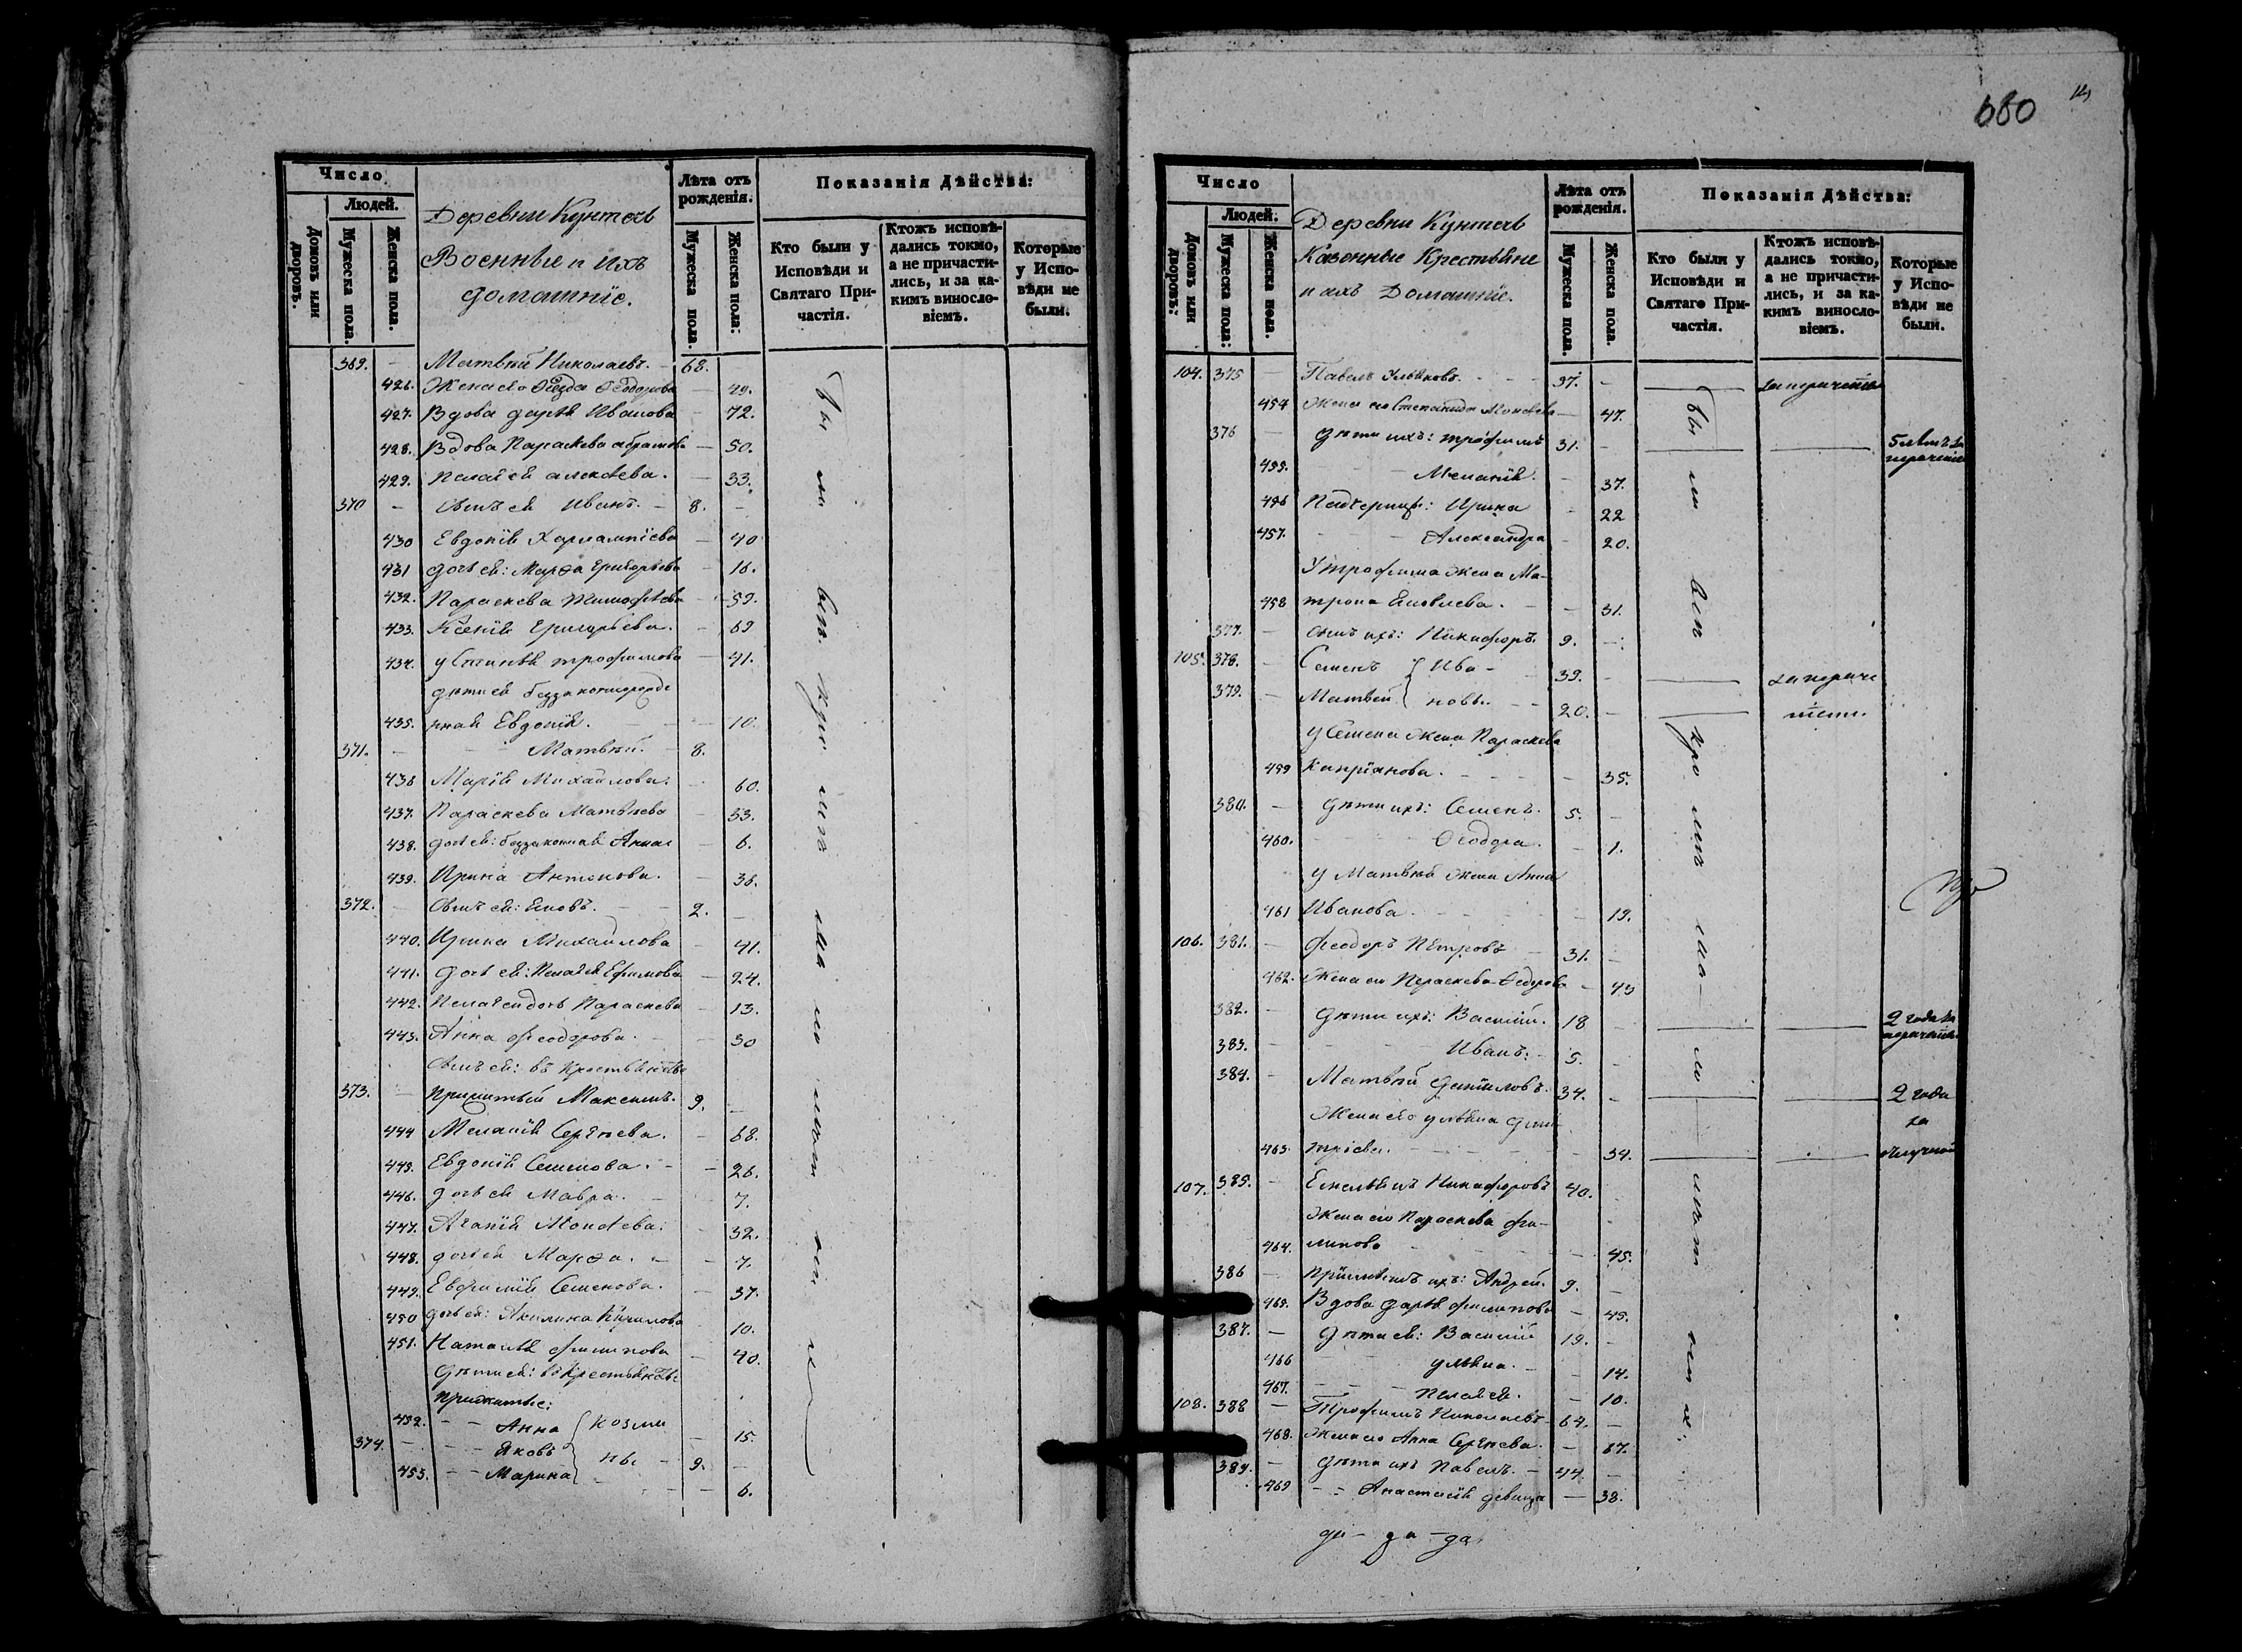 Число
Людей.
Домовъ или дворовъ.
Мужеска пола.
Женска пола.
Деревни Кунтечь
Военные и ихъ
домашніе.
Лѣта отъ рожденія.
Мужеска пола.
Женска пола:
Показанія Дѣйства:
Кто были у Исповѣди и Святаго Причастія.
Ктожъ исповѣдались токмо, а не причастились, и за какимъ винословіемъ.
Которые у Исповѣди не были.
369. — Матвѣй Николаевъ. — 68.
426. Жена его Ѳеодора — 49.
427. Вдова Дарья Иванова — 72.
428. Вдова Параскева — 50.
429. Пелагея Алексѣева. — 33.
370 — Сынъ ей Иванъ. — 8. —
430 Евдокія Харлампіева — 40
431 дочь ей: Марѳа Григорьева — 16.
432. Параскева Тимофѣева — 59.
433. Ксенія Григорьева. — 69
434. Устинья Трофимова — 41.
дѣти ей беззаконнорожде
435. нная Евдокія. — 10.
371. — Матвѣй. — 8.
436 Марія Михайлова. 60.
437. Параскева Матвѣева — 53.
438. дочь ей: беззаконная Анна — 6.
439. Ирина Антонова. — 36.
372. — Сынъ ей: Яковъ. — 2. —
440. Ирина Михайлова — 41.
441. дочь ей: Пелагея Ефимова — 24.
442. Пелагеи дочь Параскева — 13.
443. Анна Феодорова. — 30
Сынъ ей: въ Крестьянствѣ
373. — прижитый Максимъ. 9. —
444 Меланія Сергѣева. — 68.
445. Евдокія Семенова. — 26.
446. дочь ей Мавра. — 7.
447. Агапія Моисѣева. — 32.
448. дочь ей Марѳа. — 7.
449. Евфимія Семенова. — 37.
450 дочь ей: Акилина Кирилова 10.
451. Наталья Филипова — 40.
Дѣти ей: въ Крестьянствѣ
прижитые:
452. — Анна Козми — 15.
374. — Яковъ ны — 9. —
453. — Марина — 6.
Бы ли вси при мне
680
Число
Людей:
Домовъ или дворовъ:
Мужеска пола:
Женска пола.
Деревни Кунтечь
Казенные Крестьяне
и ихъ Домашніе.
Лѣта отъ рожденія.
Мужеска пола.
Женска пола.
Показанія Дѣйства:
Кто были у Исповѣди и Святаго Причастія.
Ктожъ исповѣдались токмо, а не причастились, и за какимъ винословіемъ.
Которые у Исповѣди не были.
104. 375 — Павелъ — 37. —
454 Жена его Степанида Моисѣева — 47.
376 — дѣти ихъ: Трофимъ 31. — 5 лѣтъ за
455. Меланія. — 37.
456 Падчерицы: Ирина — 22
457. Александра — 20.
У Трофима жена Ма-
458 трона Яковлева. — 31.
377. — сынъ ихъ: Никифоръ. 9. —
105. 378. — Семенъ Ива- 39. —
379. — Матвей новы. 20. —
У Семена жена Параскева
459 Кипріянова. — 35.
380. — дѣти ихъ: Семенъ. 5. —
460. Ѳеодора. — 1.
У Матвѣя жена Анна
461 Иванова. — 19.
106. 381. — Феодоръ Петровъ — 31. —
462. Жена его Параскева Ѳедорова — 43
382. — дѣти ихъ: Василій. 18 — 2 года за
383. — Иванъ. 5. —
384. — Матвѣй Даниловъ. 34. — 2 года
за
Жена его Ульяна Дми
463. тріева. — 34.
107. 385. — Емельянъ Никифоровъ 40. —
Жена его Параскева Фи-
464. липова — 45.
386 — Пріимышъ ихъ: Андрей. 9. —
465. Вдова Дарья Филипова — 45.
387. — Дѣти ей: Василій 19. —
466 Ульяна. — 14.
467. Пелагея. — 10.
108. 388 — Трофимъ Николаевъ 64. —
468. Жена его Анна Сергѣева. — 67.
389. — Дѣти ихъ Павелъ. — 44. —
469 — Анастасія девица — 38.
Бы ли вси
да — да — да